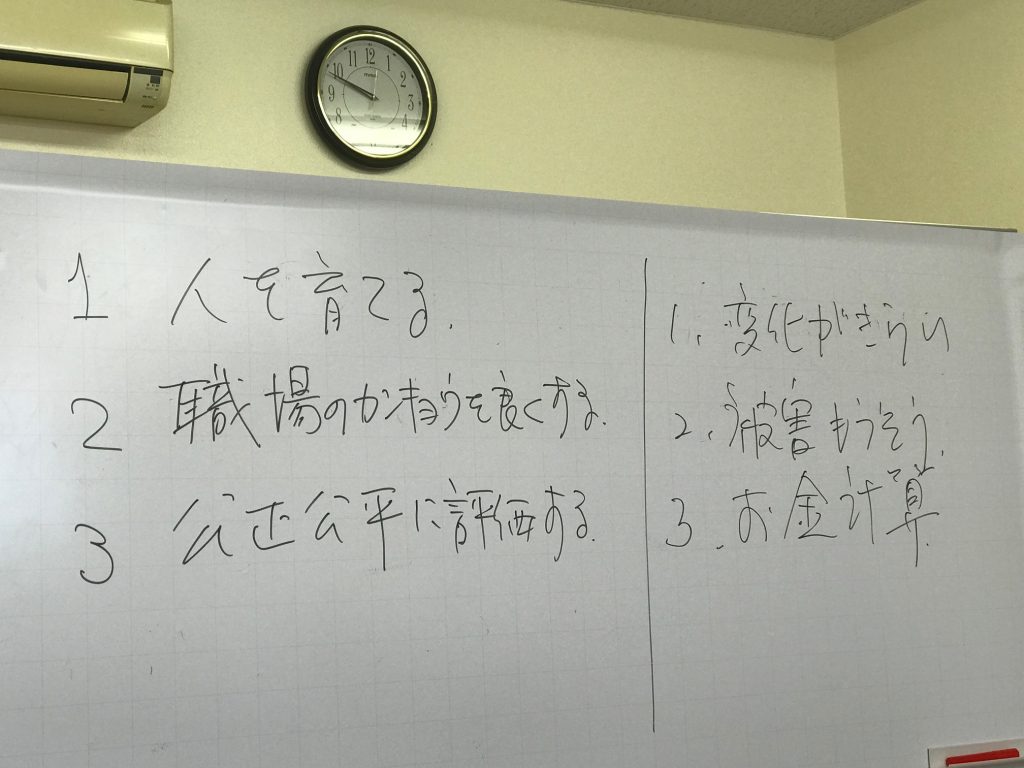 11 12 1
10 2
9 3
8 4
1 人を育てる.
2 職場のかきょうを良くする.
3 公正公平に評価する.
1. 変化がきらい
2. 被害もうそう.
3. お金計算.